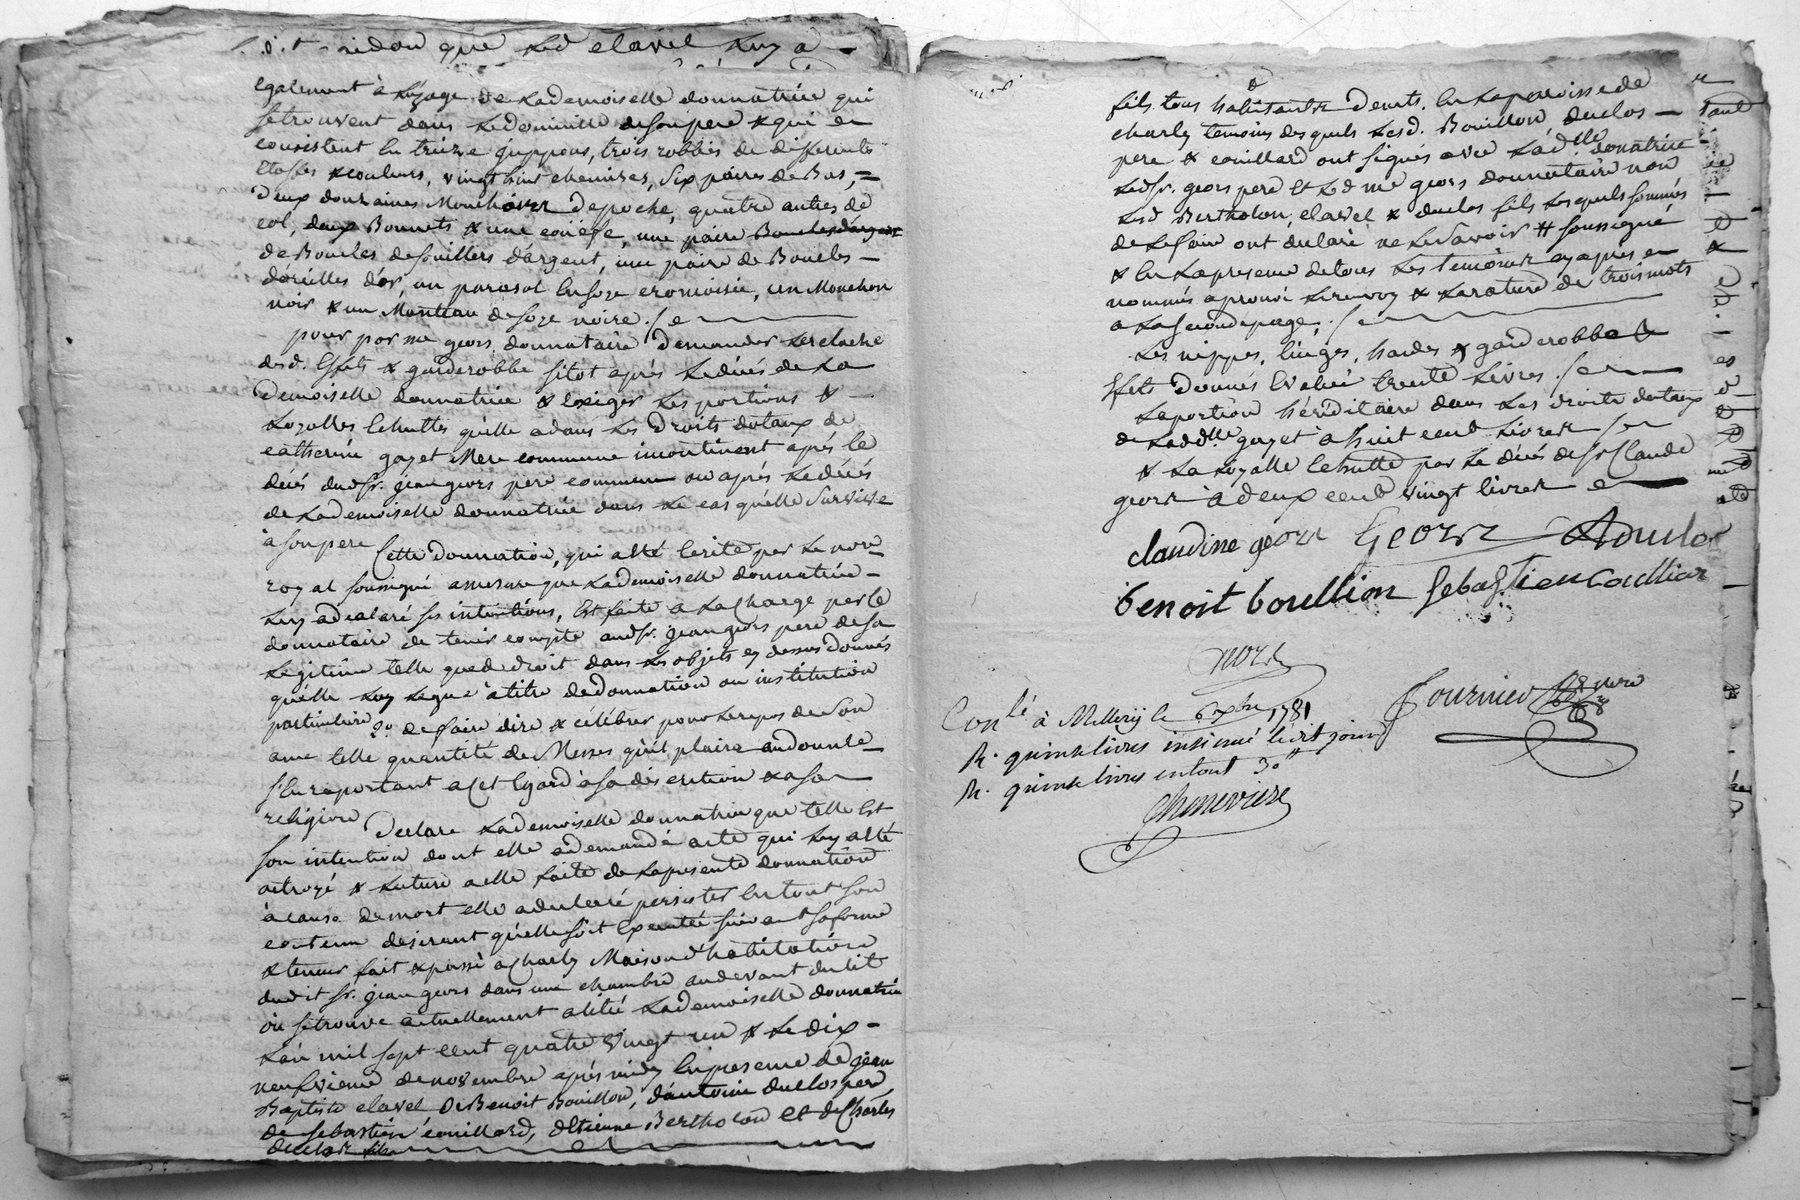 que led clavel luy a
egalement à lusage de lademoiselle donnatrice qui
se trouvent dans ledomicille desonpere & qui
consistent en treize juppons, trois robbes de differente
etoffes & couleurs, vingt huit chemises, six paires de Bas,
deux douzaines Mouchoirs depoche, quatre autres de
col, deux Bonnets & une coiffe, une paire Boucles d'argent
de Boucles desouilliers d'argent, une paire de Boucles
d'oreilles d'or, un parasol en soye cromoisie, un Mouchoir
noir & un Manteau de soye noire
pour par me geors donnataire demander
desd. Effets & garderobbe sitot après le décés de la
Demoiselle donnatrice & exiger les portions &
qu'elle a dans les droits dotaux de
catherine gayet Mere commune incontinent après le
décés dudsr. jean geors pere commun ou après le décés
de lademoiselle donnatrice dans le cas qu'elle survive
à son pere
Cette donnation, qui a eté ecrite par le nore
royal soussigné amesure que lademoiselle donnatrice
luy a declaré ses intentions, Est faite a la charge par le
donnataire de tenir compte audsr. jean geors pere de sa
legitime telle que de droit dans les objets cy dessus donnés
qu'elle luy legue à titre de donnation ou institution
particuliere 2o. de faire dire & célébrer pour le repos de son
ame telle quantité de Messes qu'il plaira audonnte
s'en raportant acet Egard à sa discretion & a sa
religion
Declare lademoiselle donnatrice que telle Est
son intention dont elle ademandé acte qui luy a eté
octroyé & lecture aelle faite de lapresente donnation
à cause de mort elle a declaré persister en tout son
contenu desirant qu'elle soit Executée suivant sa forme
& teneur fait & passé acharly Maison d'habitation
dudit sr. jean geors dans une chambre au devant du lit
où se trouve actuellement alitée lademoiselle donnatrice
Lan mil sept cent quatre vingt un & le dix
neufvieme denovembre après midy En presence de jean
Baptiste clavel De Benoit Bouillon, d'antoine duclos pere,
de sebastien couillard, d'Etienne Bertholon et de charles
duclos fils
fils tous habitants demts. en la paroisse de
charly temoins des quels lesd. Bouillon duclos
pere & couillard ont signés avec lad dlle donatrice
ledsr. geors pere et led me geors donnataire non
lesd Bertholon, clavel & duclos fils les quels sommés
de le faire ont declaré ne le savoir # soussigné
& En la presence de tous les temoins cy après
nommés aprouvé le renvoy & la rature de trois mots
a la seconde page,
Les nippes, linges, hardes & garderobbe
Effets donnés Evalués trente livres
La portion héréditaire dans les droits dotaux
de lad dlle gayet à huit cent livres
& la par le décés de sr Claude
geors à deux cent vingt livres
claudine geors Geors Aduclos
benoit boullion sebastien coulliar
nore
Fournier nore
Conlé à Millery le 6 xbre 1781
R. quinze livres insinué ledit jour
R. quinze livres en tout 30 ll
Cheneviere